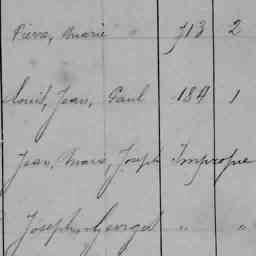 Pierre, Marie " 713 2
Louis, Jean, Paul 184 1
Jean, Marie, Joseph Impropre
Joseph, Georges " "